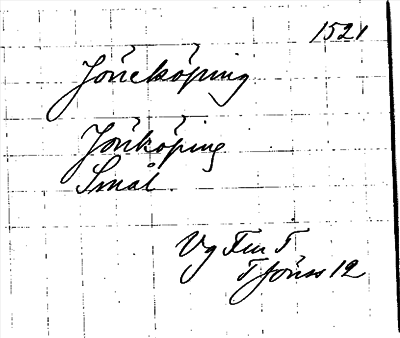 1521
Jöneköping
Jönköping
Smål.
Vg Fem T
T Jönss 12